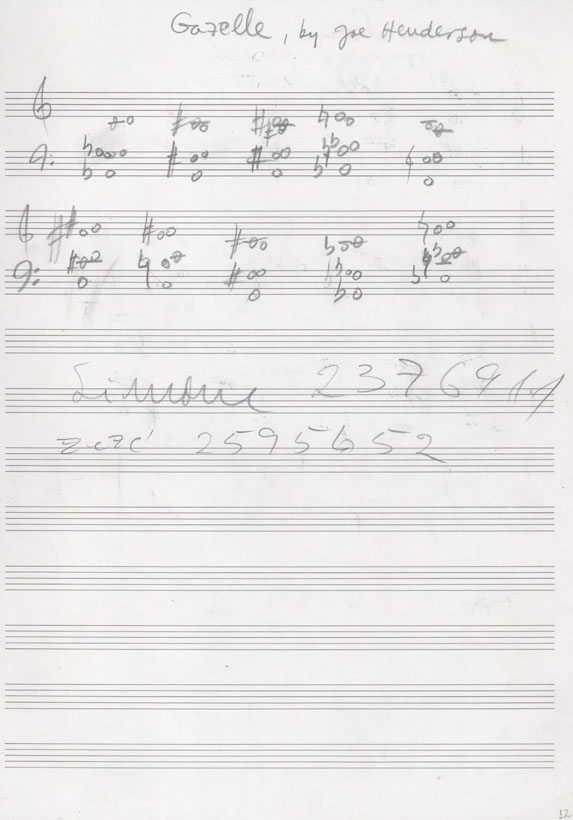 Gazelle, by Joe Henderson
Simone 237.69
zezé 2595652
12